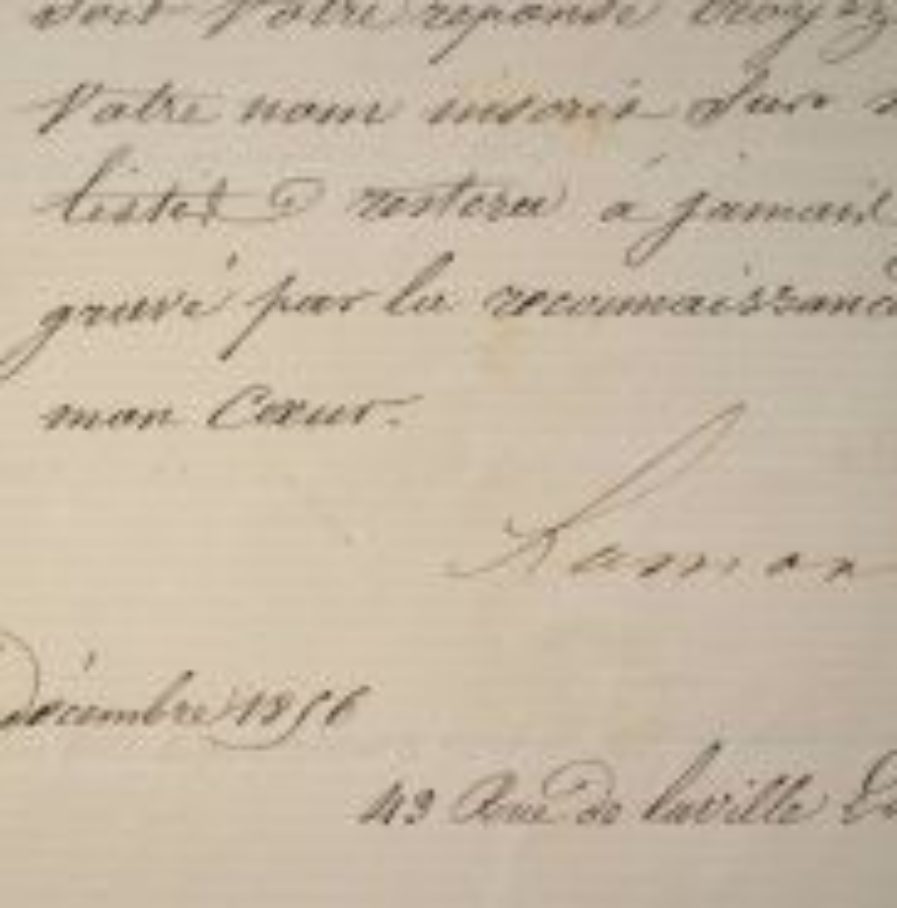 soit Votre réponse Croyez
Votre nom inscris Sur
listes restera à jamais
gravé par la reconnaissance
mon Cœur.
Lamon
Décembre 1856
43 Rue de la ville